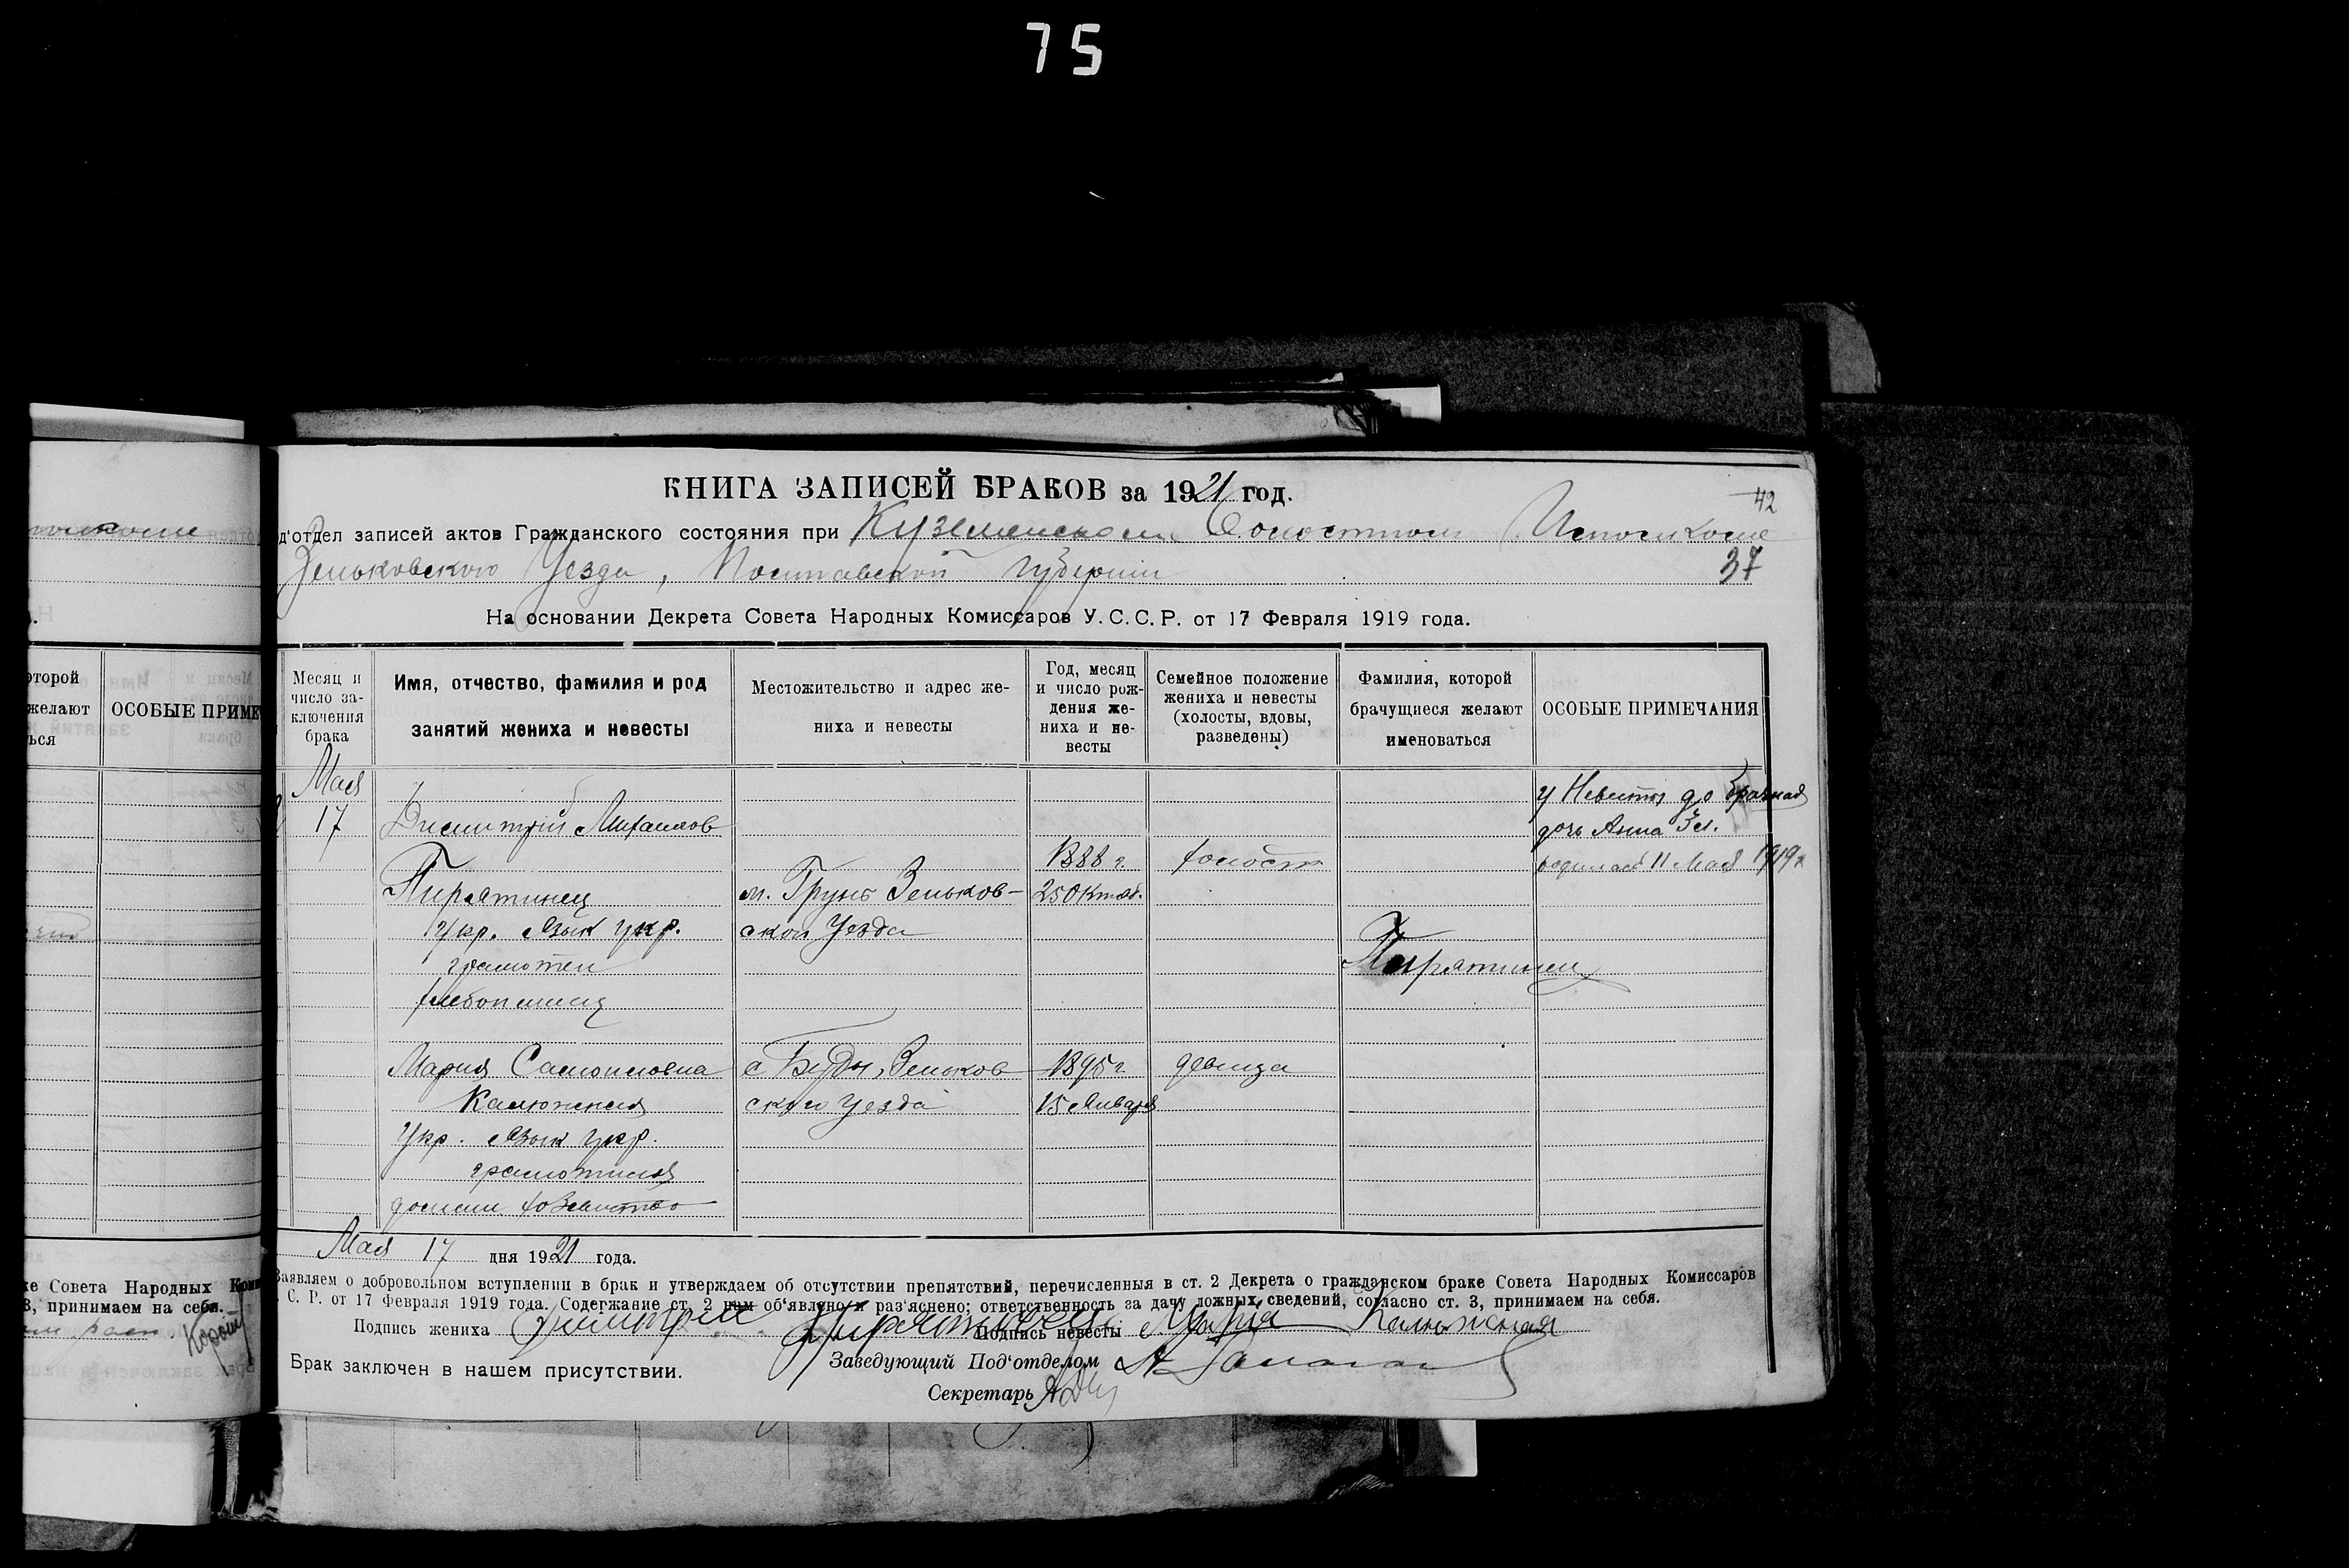 75
КНИГА ЗАПИСЕЙ БРАКОВ за 1921 год.
42
д'отдел записей актов Гражданского состояния при Куземенском Волостном Исполкоме
Зеньковского Уезда, Полтавской Губернии
37
На основании Декрета Совета Народных Комиссаров У.С.С.Р. от 17 Февраля 1919 года.
оторой
желают
ься
ОСОБЫЕ ПРИМЕ
Месяц и число за-
ключения
брака
Имя, отчество, фамилия и род
занятий жениха и невесты
Местожительство и адрес же-
ниха и невесты
Год, месяц
и число рож-
дения же-
ниха и не-
весты
Семейное положение
жениха и невесты
(холосты, вдовы,
разведены)
Фамилия, которой
брачущиеся желают
именоваться
ОСОБЫЕ ПРИМЕЧАНИЯ
Мая
17
Димитрій Михайлов
Пирятинец
Укр. Язык укр.
грамотен
хлебопашец
м. Грунь Зеньков-
ской Уезда
1888 г.
25 Октяб.
холост
Пирятинец
у Невесты до брачная
дочь Анна 3 л.
родилась 11 Мая 1919 г
Мария Самойловна
Калюжная
Укр. Язык укр.
грамотная
домаш хозяйство
с Буды, Зеньков
ского Уезда
1895 г
15 Января
девица
Мая 17 дня 1921 года.
Заявляем о добровольном вступлении в брак и утверждаем об отсутствии препятствий, перечисленныя в ст. 2 Декрета о гражданском браке Совета Народных Комиссаров
С. Р. от 17 Февраля 1919 года. Содержание ст. 2 нам об'явлено и раз'яснено; ответственность за дачу ложных сведений, согласно ст. 3, принимаем на себя.
Подпись жениха Димитрий Пирятинец Подпись невесты Марія Калюжная
Брак заключен в нашем присутствии.
Заведующий Под'отделом
Секретарь
ке Совета Народных Коми
3, принимаем на себя.